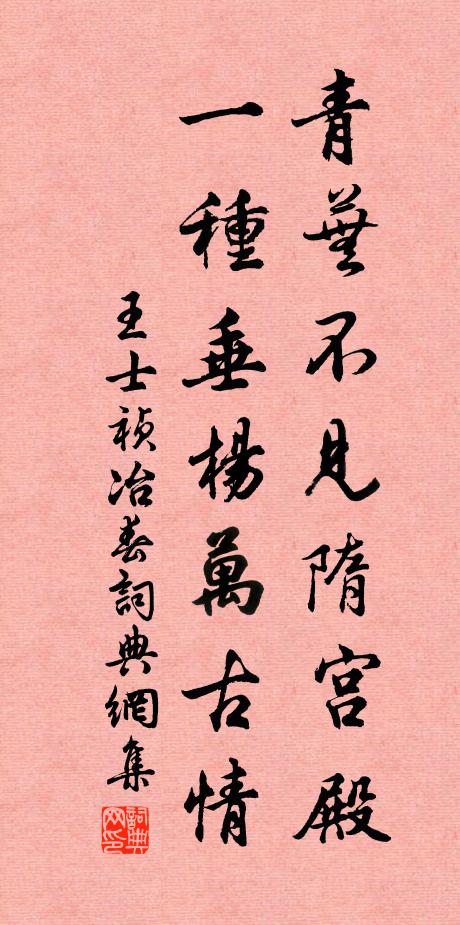 青蕪不見隋宮殿
一種垂楊萬古情
王士禎冶春詞典網集
詞典網印